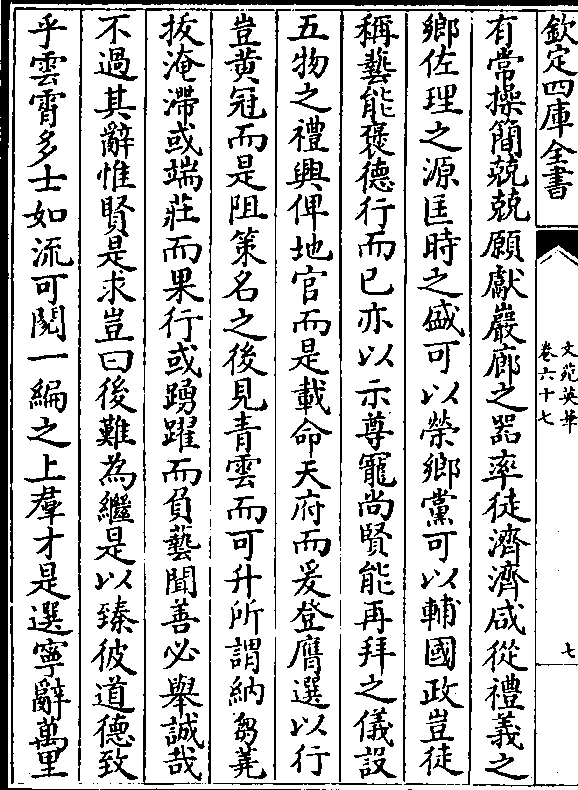 欽定四庫全書
文苑英華
卷六十七
七
有常操簡兢兢願獻巖廊之器率徒濟濟咸從禮義之
鄉佐理之源匡時之盛可以榮鄉黨可以輔國政豈徒
稱藝能褒德行而已亦以示尊寵尚賢能再拜之儀設
五物之禮興俾地官而是載命天府而爰登膺選以行
豈黄冠而是阻策名之後見青雲而可升所謂納芻蕘
拔淹滯或端莊而果行或踴躍而負藝聞善必舉誠哉
不過其辭惟賢是求豈曰後難為繼是以臻彼道德致
乎雲霄多士如流可閱一編之上羣才是選寧辭萬里